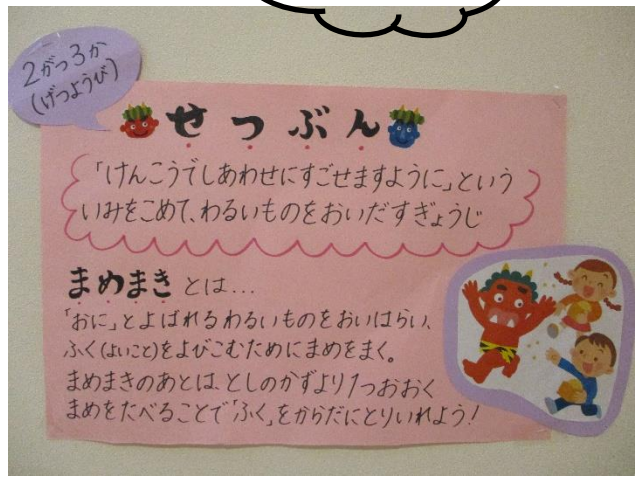 2がつ3か
(げつようび)
せつぶん
「けんこうでしあわせにすごせますように」という
いみをこめて、わるいものをおいだすぎょうじ
まめまきとは…
「おに」とよばれるわるいものをおいはらい、
ふく(よいこと)をよびこむためにまめをまく。
まめまきのあとは、としのかずより1つおおく
まめをたべることで「ふく」をからだにとりいれよう!